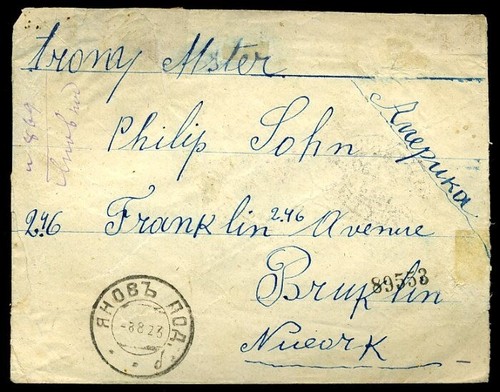 trony Mster
Америка
Philip Sohn
246 Franklin 246 Avenue
Bruklin
89553
Nueork
ЯНОВЪ ПОД.
-8.8.23